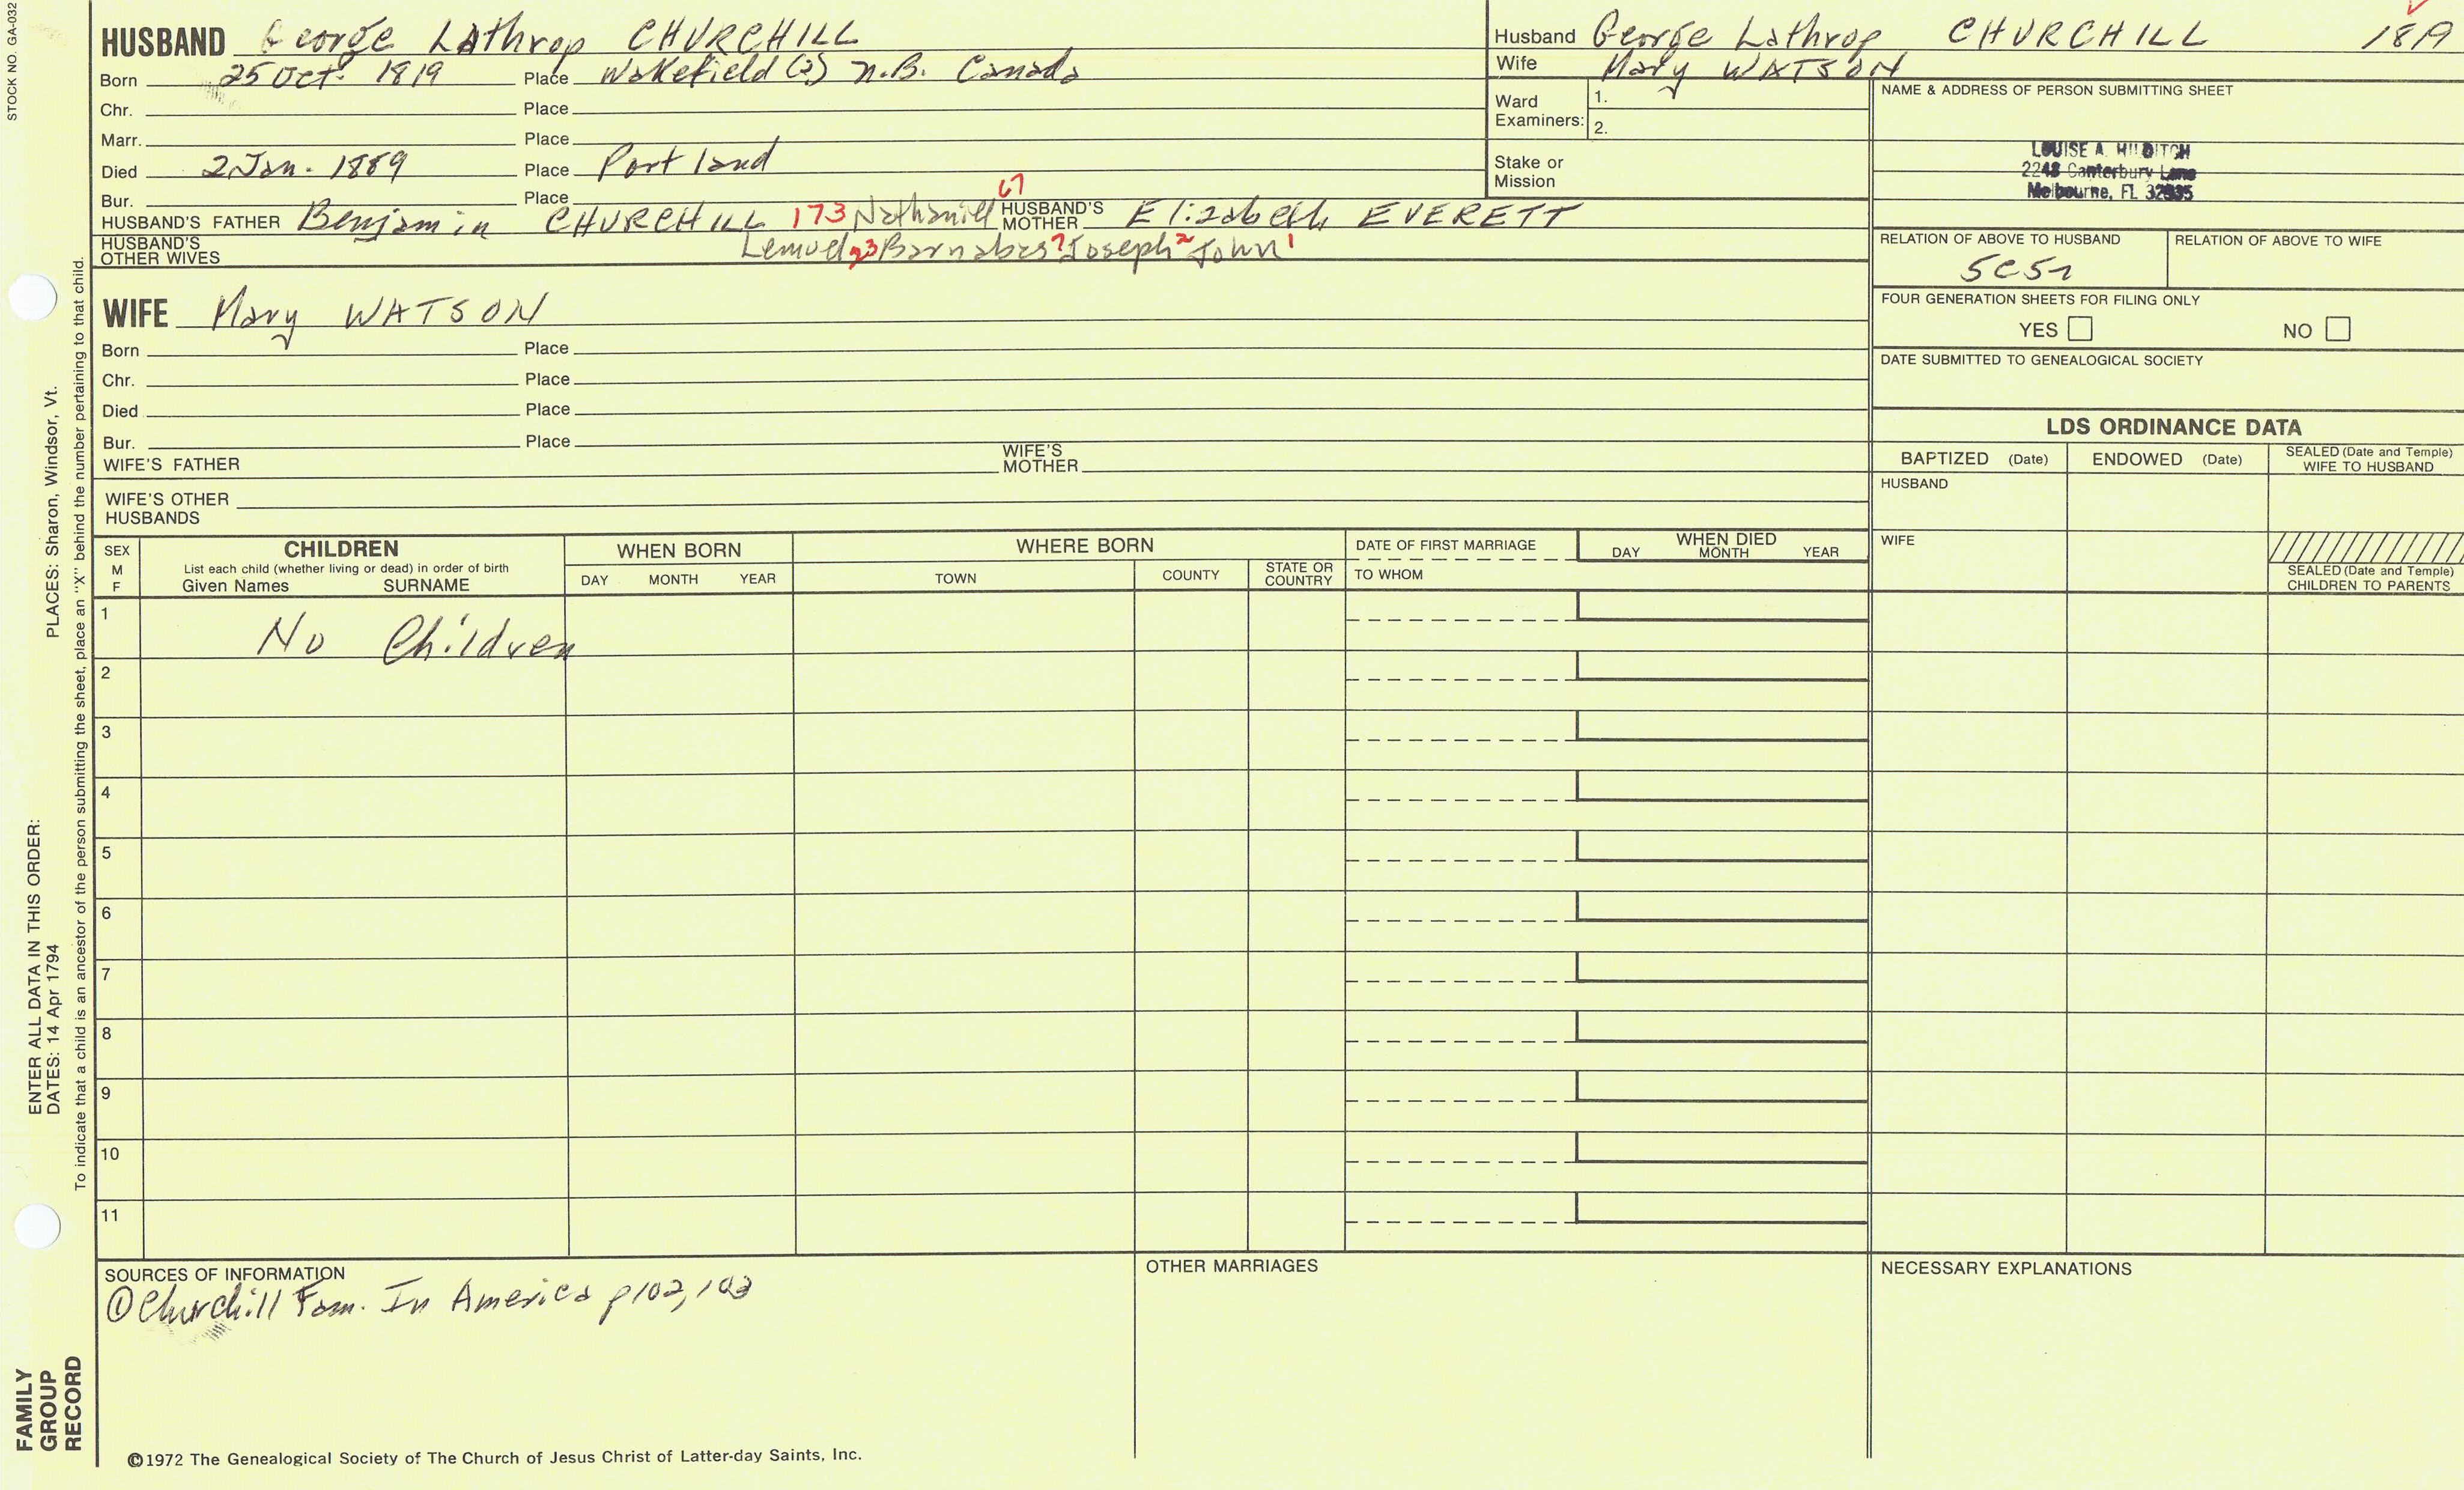 STOCK NO. GA-032
HUSBAND George Lathrop CHURCHILL
Born 25 Oct. 1819 Place Wakefield (?) N.B. Canada
Chr. Place
Marr. Place
Died 2 Jan. 1889 Place Portland
Bur. Place
HUSBAND'S FATHER Benjamin CHURCHILL 173 Nathaniel 67 HUSBAND'S MOTHER Elizabeth EVERETT
HUSBAND'S OTHER WIVES Lemuel 23 Barnabas 7 Joseph 2 John 1
Husband George Lathrop CHURCHILL 1819
Wife Mary WATSON
Ward Examiners: 1.
2.
Stake or Mission
NAME & ADDRESS OF PERSON SUBMITTING SHEET
LOUISE A. HILDITCH
2248 Canterbury Lane
Melbourne, FL 32935
RELATION OF ABOVE TO HUSBAND RELATION OF ABOVE TO WIFE
5C5R
FOUR GENERATION SHEETS FOR FILING ONLY
YES NO
DATE SUBMITTED TO GENEALOGICAL SOCIETY
WIFE Mary WATSON
Born Place
Chr. Place
Died Place
Bur. Place
WIFE'S FATHER WIFE'S MOTHER
WIFE'S OTHER HUSBANDS
LDS ORDINANCE DATA
BAPTIZED (Date) ENDOWED (Date) SEALED (Date and Temple) WIFE TO HUSBAND
HUSBAND
WIFE
SEALED (Date and Temple) CHILDREN TO PARENTS
SEX M F
CHILDREN
List each child (whether living or dead) in order of birth
Given Names SURNAME
WHEN BORN
DAY MONTH YEAR
WHERE BORN
TOWN COUNTY STATE OR COUNTRY
DATE OF FIRST MARRIAGE
TO WHOM
WHEN DIED
DAY MONTH YEAR
1 No Children
2
3
4
5
6
7
8
9
10
11
SOURCES OF INFORMATION
① Churchill Fam. In America p102, 103
OTHER MARRIAGES
NECESSARY EXPLANATIONS
©1972 The Genealogical Society of The Church of Jesus Christ of Latter-day Saints, Inc.
FAMILY GROUP RECORD
ENTER ALL DATA IN THIS ORDER:
DATES: 14 Apr 1794 PLACES: Sharon, Windsor, Vt.
To indicate that a child is an ancestor of the person submitting the sheet, place an "X" behind the number pertaining to that child.